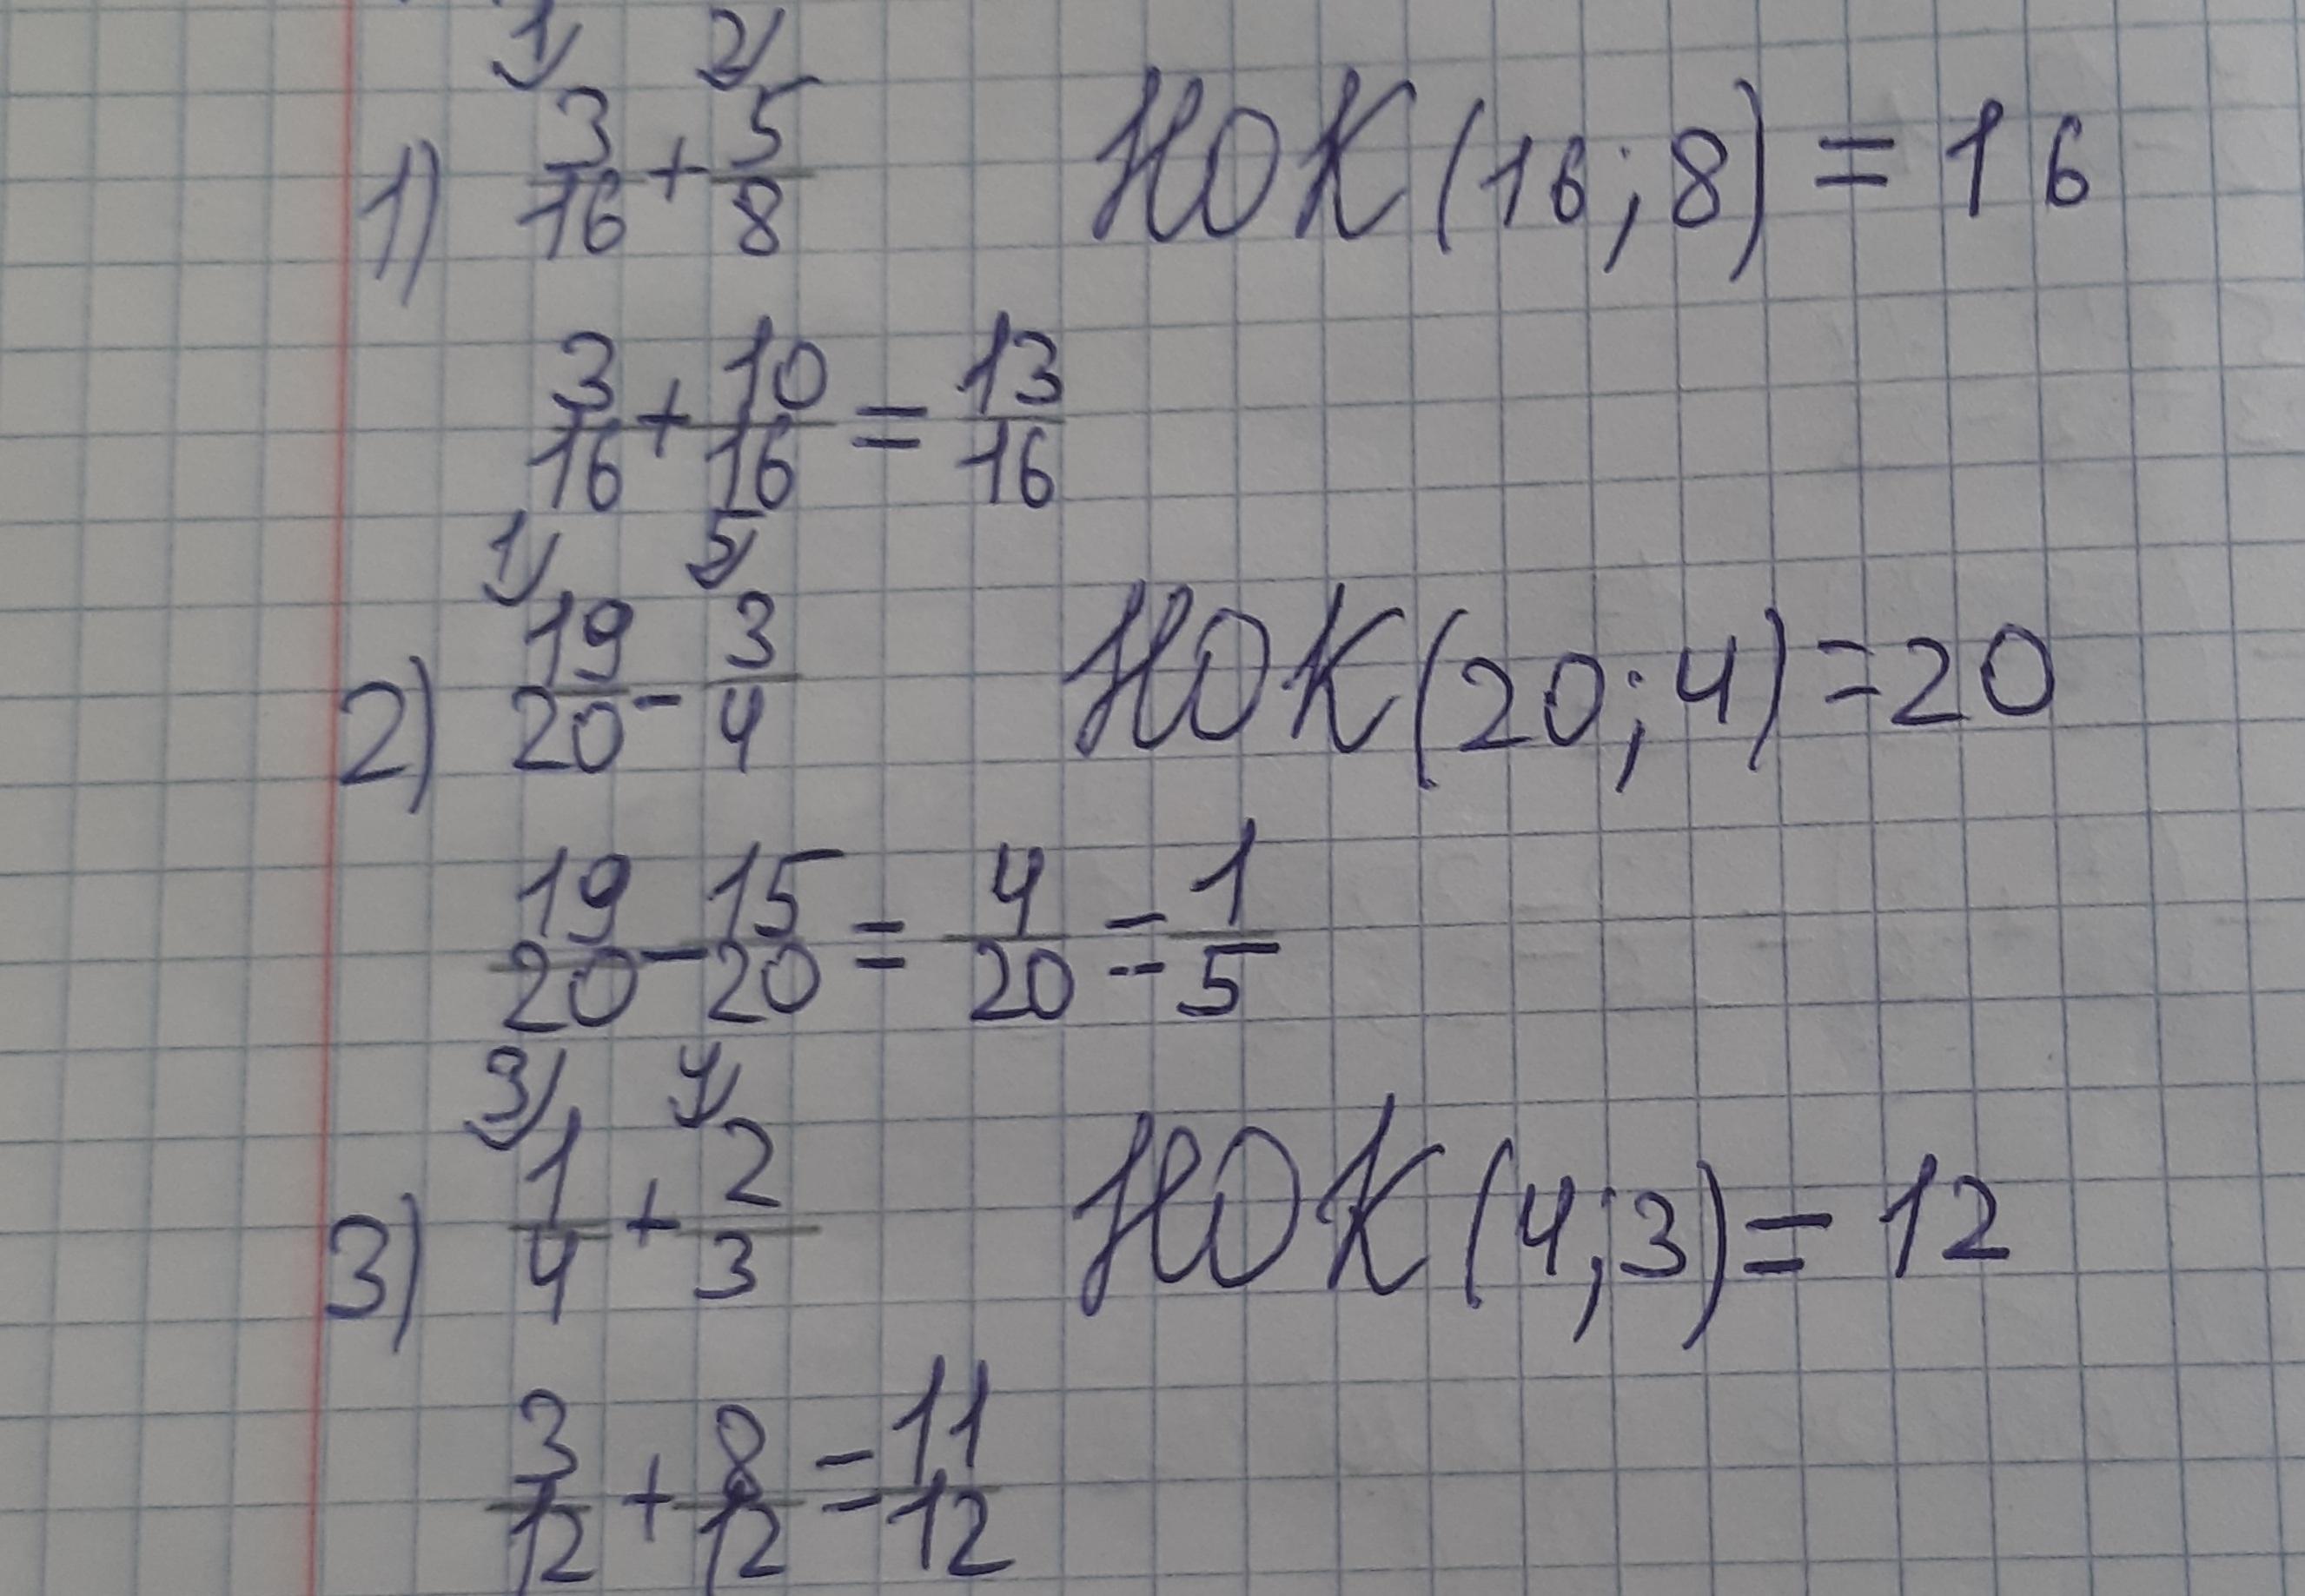 1) 2)
1) 3/16 + 5/8 НОК (16; 8) = 16
3/16 + 10/16 = 13/16
1) 5)
2) 19/20 - 3/4 НОК (20; 4) = 20
19/20 - 15/20 = 4/20 = 1/5
3) 4)
3) 1/4 + 2/3 НОК (4; 3) = 12
3/12 + 8/12 = 11/12